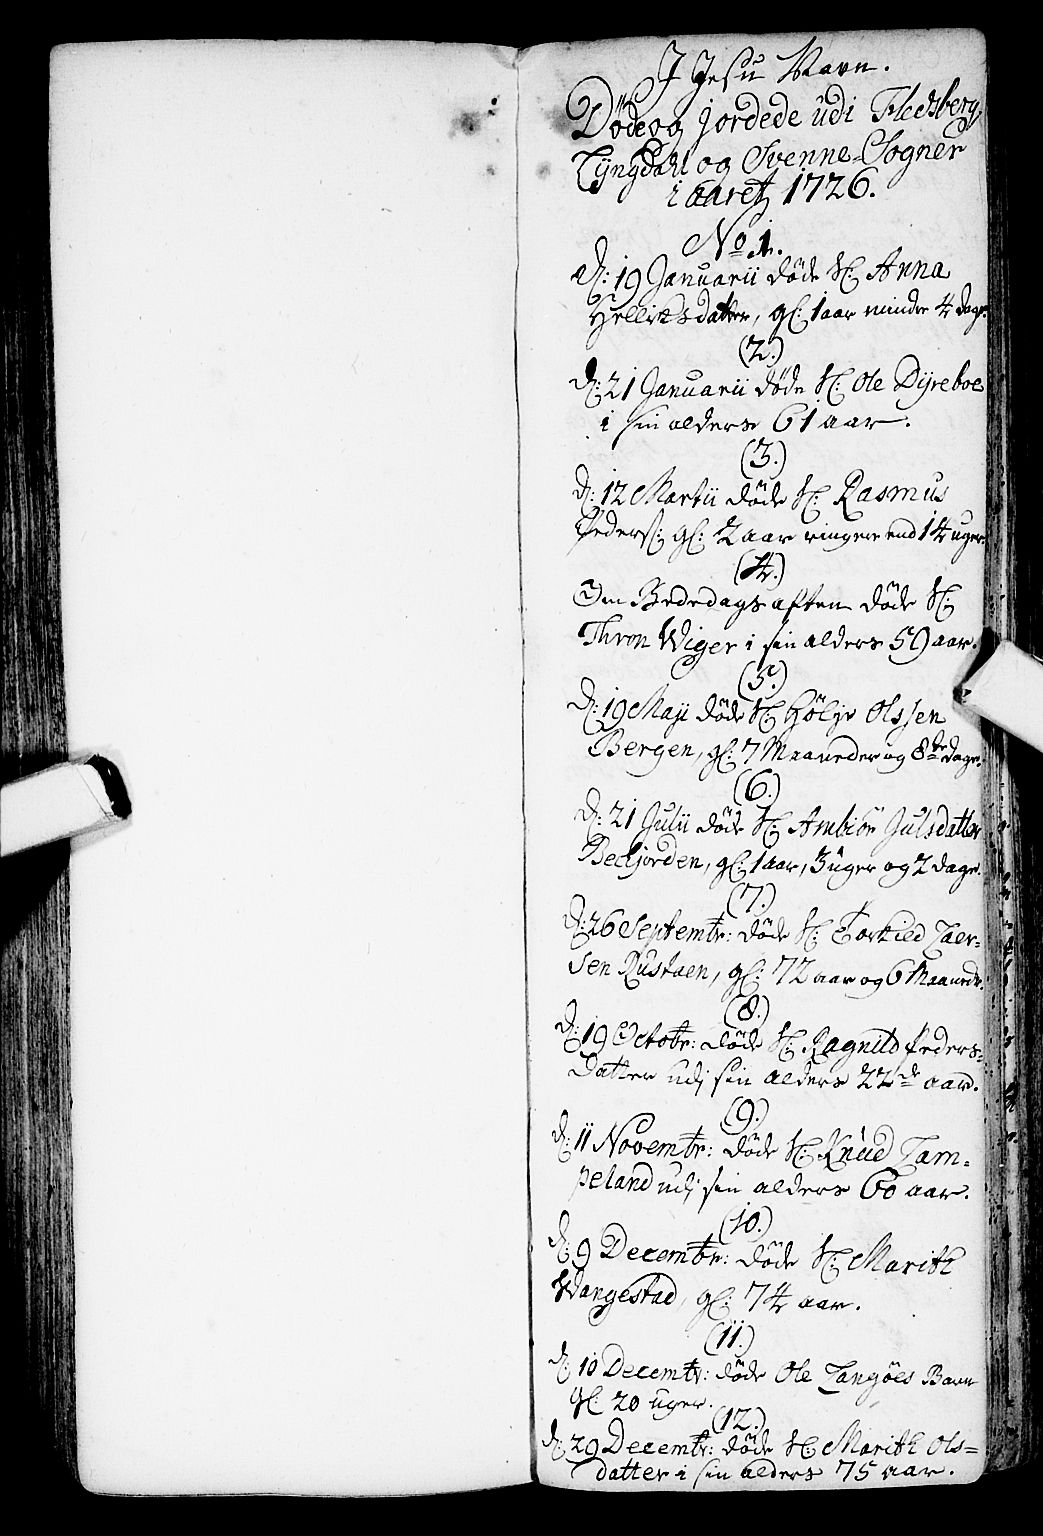 J Jesu Navn.
Döde og jordede udi Fledsberg,
Lÿngdahl og Svenne-Sogner
i aaret 1726.
No 1.
d: 19 Januarii döde Sl: Anna
Hellicksdatter, gl: 1 aar mindre 4 dage.
(2.)
d: 21 Januarii döde Sl: Ole Dÿreboe
i sin alders 61 aar.
(3.)
d: 12 Martii döde Sl: Rasmus
Peders: gl: 2 aar ringere end 14 uger.
(4.)
Om Bededags aften döde Sl:
Thron Wiger i sin alders 59 aar.
(5.)
d: 19 Maji döde Sl: Hölje Olssen
Bergen, gl: 7 Maaneder og 8te dage.
(6.)
d: 21 Julii döde Sl: Ambiör Julsdatter
Beckjorden, gl: 1 aar, 3 uger og 2 dage.
(7.)
d: 26 Septembr: döde Sl: Torkied Laer-
sen Rustaen, gl: 72 aar og 6 Maaneder.
(8.)
d: 19 Octobr: döde Sl: Ragnild Peders-
datter udj sin alders 22de aar.
(9.)
d: 11 Novembr: döde Sl: Knud Lam-
peland udj sin alders 60 aar.
(10.)
d: 9 Decembr: döde Sl: Marith
Wangestad, gl: 74 aar.
(11.)
d: 10 Decembr: döde Ole Langöes Barn
gl: 20 uger.
(12.)
d: 29 Decembr: döde Sl: Marith Ols-
datter i sin alders 75 aar.